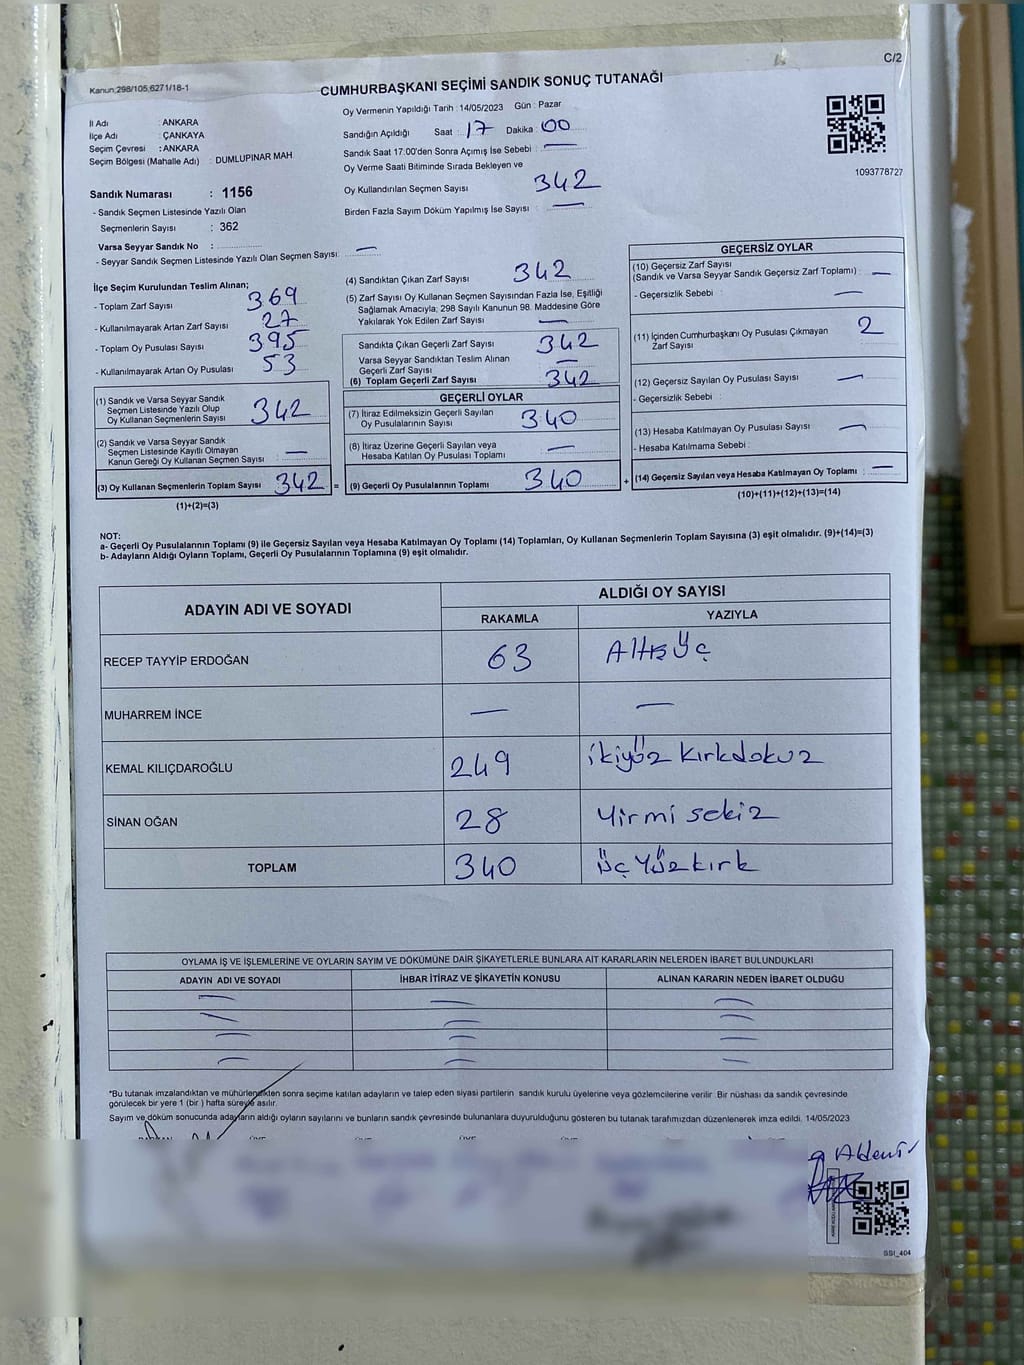 C/2
Kanun;298/105,6271/18-1
CUMHURBAŞKANI SEÇİMİ SANDIK SONUÇ TUTANAĞI
İl Adı : ANKARA
İlçe Adı : ÇANKAYA
Seçim Çevresi : ANKARA
Seçim Bölgesi (Mahalle Adı) : DUMLUPINAR MAH
Sandık Numarası : 1156
- Sandık Seçmen Listesinde Yazılı Olan
Seçmenlerin Sayısı : 362
Varsa Seyyar Sandık No :
- Seyyar Sandık Seçmen Listesinde Yazılı Olan Seçmen Sayısı: —
Oy Vermenin Yapıldığı Tarih : 14/05/2023 Gün : Pazar
Sandığın Açıldığı Saat : 17 Dakika : 00
Sandık Saat 17:00'den Sonra Açımış İse Sebebi : —
Oy Verme Saati Bitiminde Sırada Bekleyen ve
Oy Kullandırılan Seçmen Sayısı 342
Birden Fazla Sayım Döküm Yapılmış İse Sayısı : —
1093778727
İlçe Seçim Kurulundan Teslim Alınan;
- Toplam Zarf Sayısı 369
- Kullanılmayarak Artan Zarf Sayısı 27
- Toplam Oy Pusulası Sayısı 395
- Kullanılmayarak Artan Oy Pusulası 53
(1) Sandık ve Varsa Seyyar Sandık
Seçmen Listesinde Yazılı Olup
Oy Kullanan Seçmenlerin Sayısı 342
(2) Sandık ve Varsa Seyyar Sandık
Seçmen Listesinde Kayıtlı Olmayan
Kanun Gereği Oy Kullanan Seçmen Sayısı : —
(3) Oy Kullanan Seçmenlerin Toplam Sayısı 342 =
(1)+(2)=(3)
(4) Sandıktan Çıkan Zarf Sayısı 342
(5) Zarf Sayısı Oy Kullanan Seçmen Sayısından Fazla İse, Eşitliği
Sağlamak Amacıyla; 298 Sayılı Kanunun 98. Maddesine Göre
Yakılarak Yok Edilen Zarf Sayısı —
Sandıkta Çıkan Geçerli Zarf Sayısı 342
Varsa Seyyar Sandıktan Teslim Alınan
Geçerli Zarf Sayısı —
(6) Toplam Geçerli Zarf Sayısı 342
GEÇERLİ OYLAR
(7) İtiraz Edilmeksizin Geçerli Sayılan
Oy Pusulalarının Sayısı 340
(8) İtiraz Üzerine Geçerli Sayılan veya
Hesaba Katılan Oy Pusulası Toplamı —
(9) Geçerli Oy Pusulalarının Toplamı 340 +
GEÇERSİZ OYLAR
(10) Geçersiz Zarf Sayısı
(Sandık ve Varsa Seyyar Sandık Geçersiz Zarf Toplamı) : —
- Geçersizlik Sebebi : —
(11) İçinden Cumhurbaşkanı Oy Pusulası Çıkmayan
Zarf Sayısı 2
(12) Geçersiz Sayılan Oy Pusulası Sayısı —
- Geçersizlik Sebebi :
(13) Hesaba Katılmayan Oy Pusulası Sayısı —
- Hesaba Katılmama Sebebi :
(14) Geçersiz Sayılan veya Hesaba Katılmayan Oy Toplamı : —
(10)+(11)+(12)+(13)=(14)
NOT:
a- Geçerli Oy Pusulalarının Toplamı (9) ile Geçersiz Sayılan veya Hesaba Katılmayan Oy Toplamı (14) Toplamları, Oy Kullanan Seçmenlerin Toplam Sayısına (3) eşit olmalıdır. (9)+(14)=(3)
b- Adayların Aldığı Oyların Toplamı, Geçerli Oy Pusulalarının Toplamına (9) eşit olmalıdır.
ADAYIN ADI VE SOYADI ALDIĞI OY SAYISI
RAKAMLA YAZIYLA
RECEP TAYYİP ERDOĞAN 63 Altmış Üç
MUHARREM İNCE — —
KEMAL KILIÇDAROĞLU 249 ikiyüz kırkdokuz
SİNAN OĞAN 28 Yirmi sekiz
TOPLAM 340 Üç Yüz kırk
OYLAMA İŞ VE İŞLEMLERİNE VE OYLARIN SAYIM VE DÖKÜMÜNE DAİR ŞİKAYETLERLE BUNLARA AİT KARARLARIN NELERDEN İBARET BULUNDUKLARI
ADAYIN ADI VE SOYADI İHBAR İTİRAZ VE ŞİKAYETİN KONUSU ALINAN KARARIN NEDEN İBARET OLDUĞU
— — —
— — —
— — —
— — —
*Bu tutanak imzalandıktan ve mühürlendikten sonra seçime katılan adayların ve talep eden siyasi partilerin sandık kurulu üyelerine veya gözlemcilerine verilir. Bir nüshası da sandık çevresinde
görülecek bir yere 1 (bir ) hafta süreyle asılır.
Sayım ve döküm sonucunda adayların aldığı oyların sayılarını ve bunların sandık çevresinde bulunanlara duyurulduğunu gösteren bu tutanak tarafımızdan düzenlenerek imza edildi. 14/05/2023
SSI_404